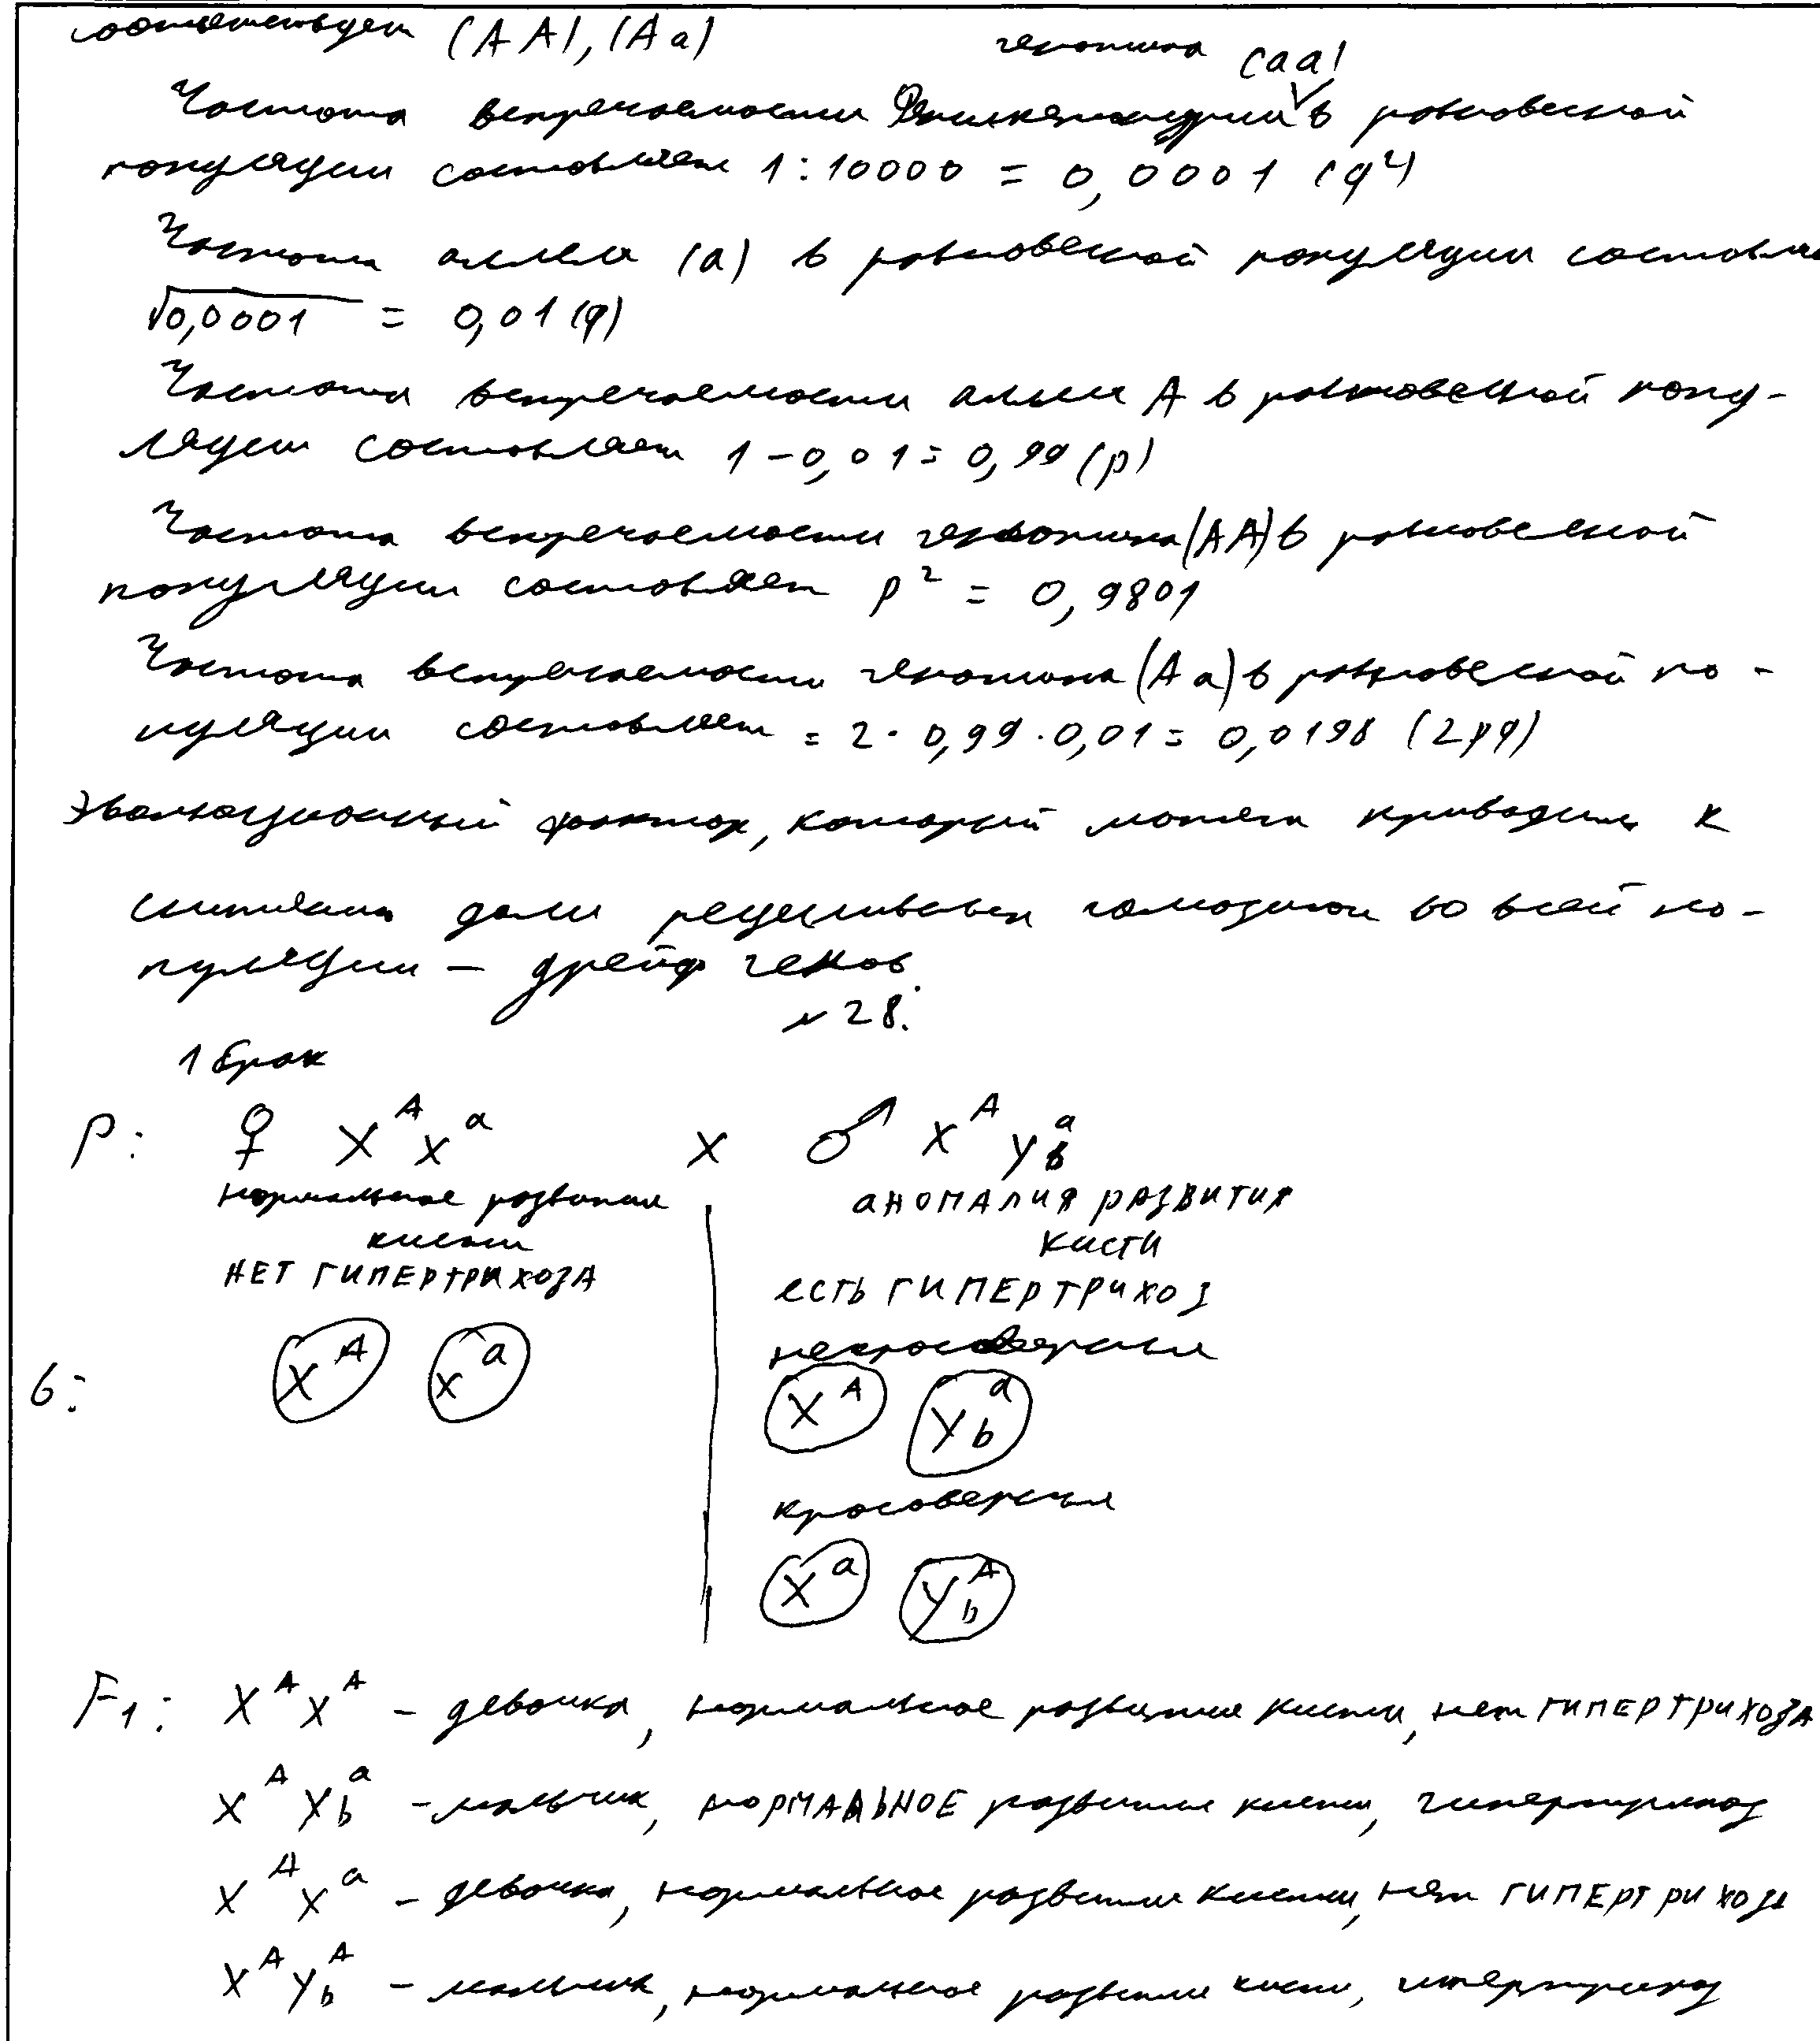 соответствует (АА), (Аа)
генотипа (аа)
Частота встречаемости Фенилкетонурии в равновесной
популяции составляет 1:10000 = 0,0001 (q²)
Частота аллеля (а) в равновесной популяции составля
√0,0001 = 0,01 (q)
Частота встречаемости аллеля А в равновесной попу-
ляции составляет 1-0,01=0,99 (p)
Частота встречаемости генотипа (АА) в равновесной
популяции составляет p² = 0,9801
Частота встречаемости генотипа (Аа) в равновесной по-
пуляции составляет = 2·0,99·0,01=0,0198 (2pq)
Эволюционный фактор, который может приводить к
снижению доли рецессивных гомозигот во всей по-
пуляции – дрейф генов.
№28.
1 брак
P: ♀ XᴬXᵃ x ♂ XᴬYᵃb
нормальное развитие аномалия развития
кисти кисти
нет гипертрихоза есть гипертрихоз
некроссоверные
G: Xᴬ Xᵃ Xᴬ Yᵃb
кроссоверные
Xᵃ Yᴬb
F1: XᴬXᴬ – девочка, нормальное развитие кисти, нет гипертрихоза
XᴬYᵃb – мальчик, нормальное развитие кисти, гипертрихоз
XᴬXᵃ – девочка, нормальное развитие кисти, нет гипертрихоза
XᴬYᴬb – мальчик, нормальное развитие кисти, гипертрихоз